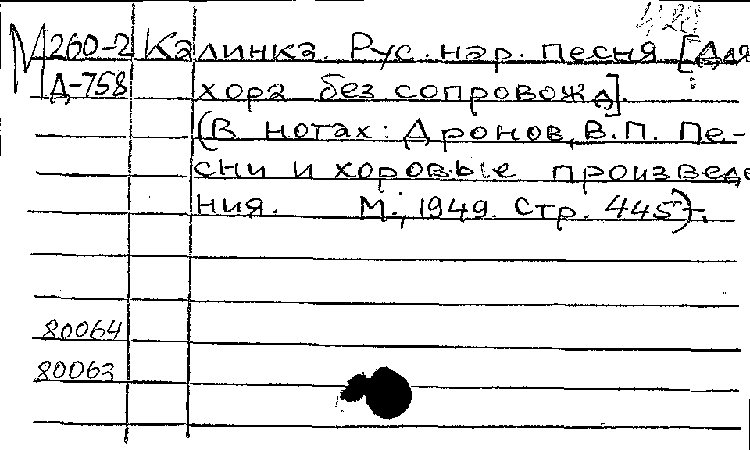 М 260-2 Калинка. Рус. нар. песня [Для
Д-758 хора без сопровожд].
(В нотах: Дронов, В.П. Пе-
сни и хоровые произведе
ния. М., 1949. Стр. 445).
80064
80063